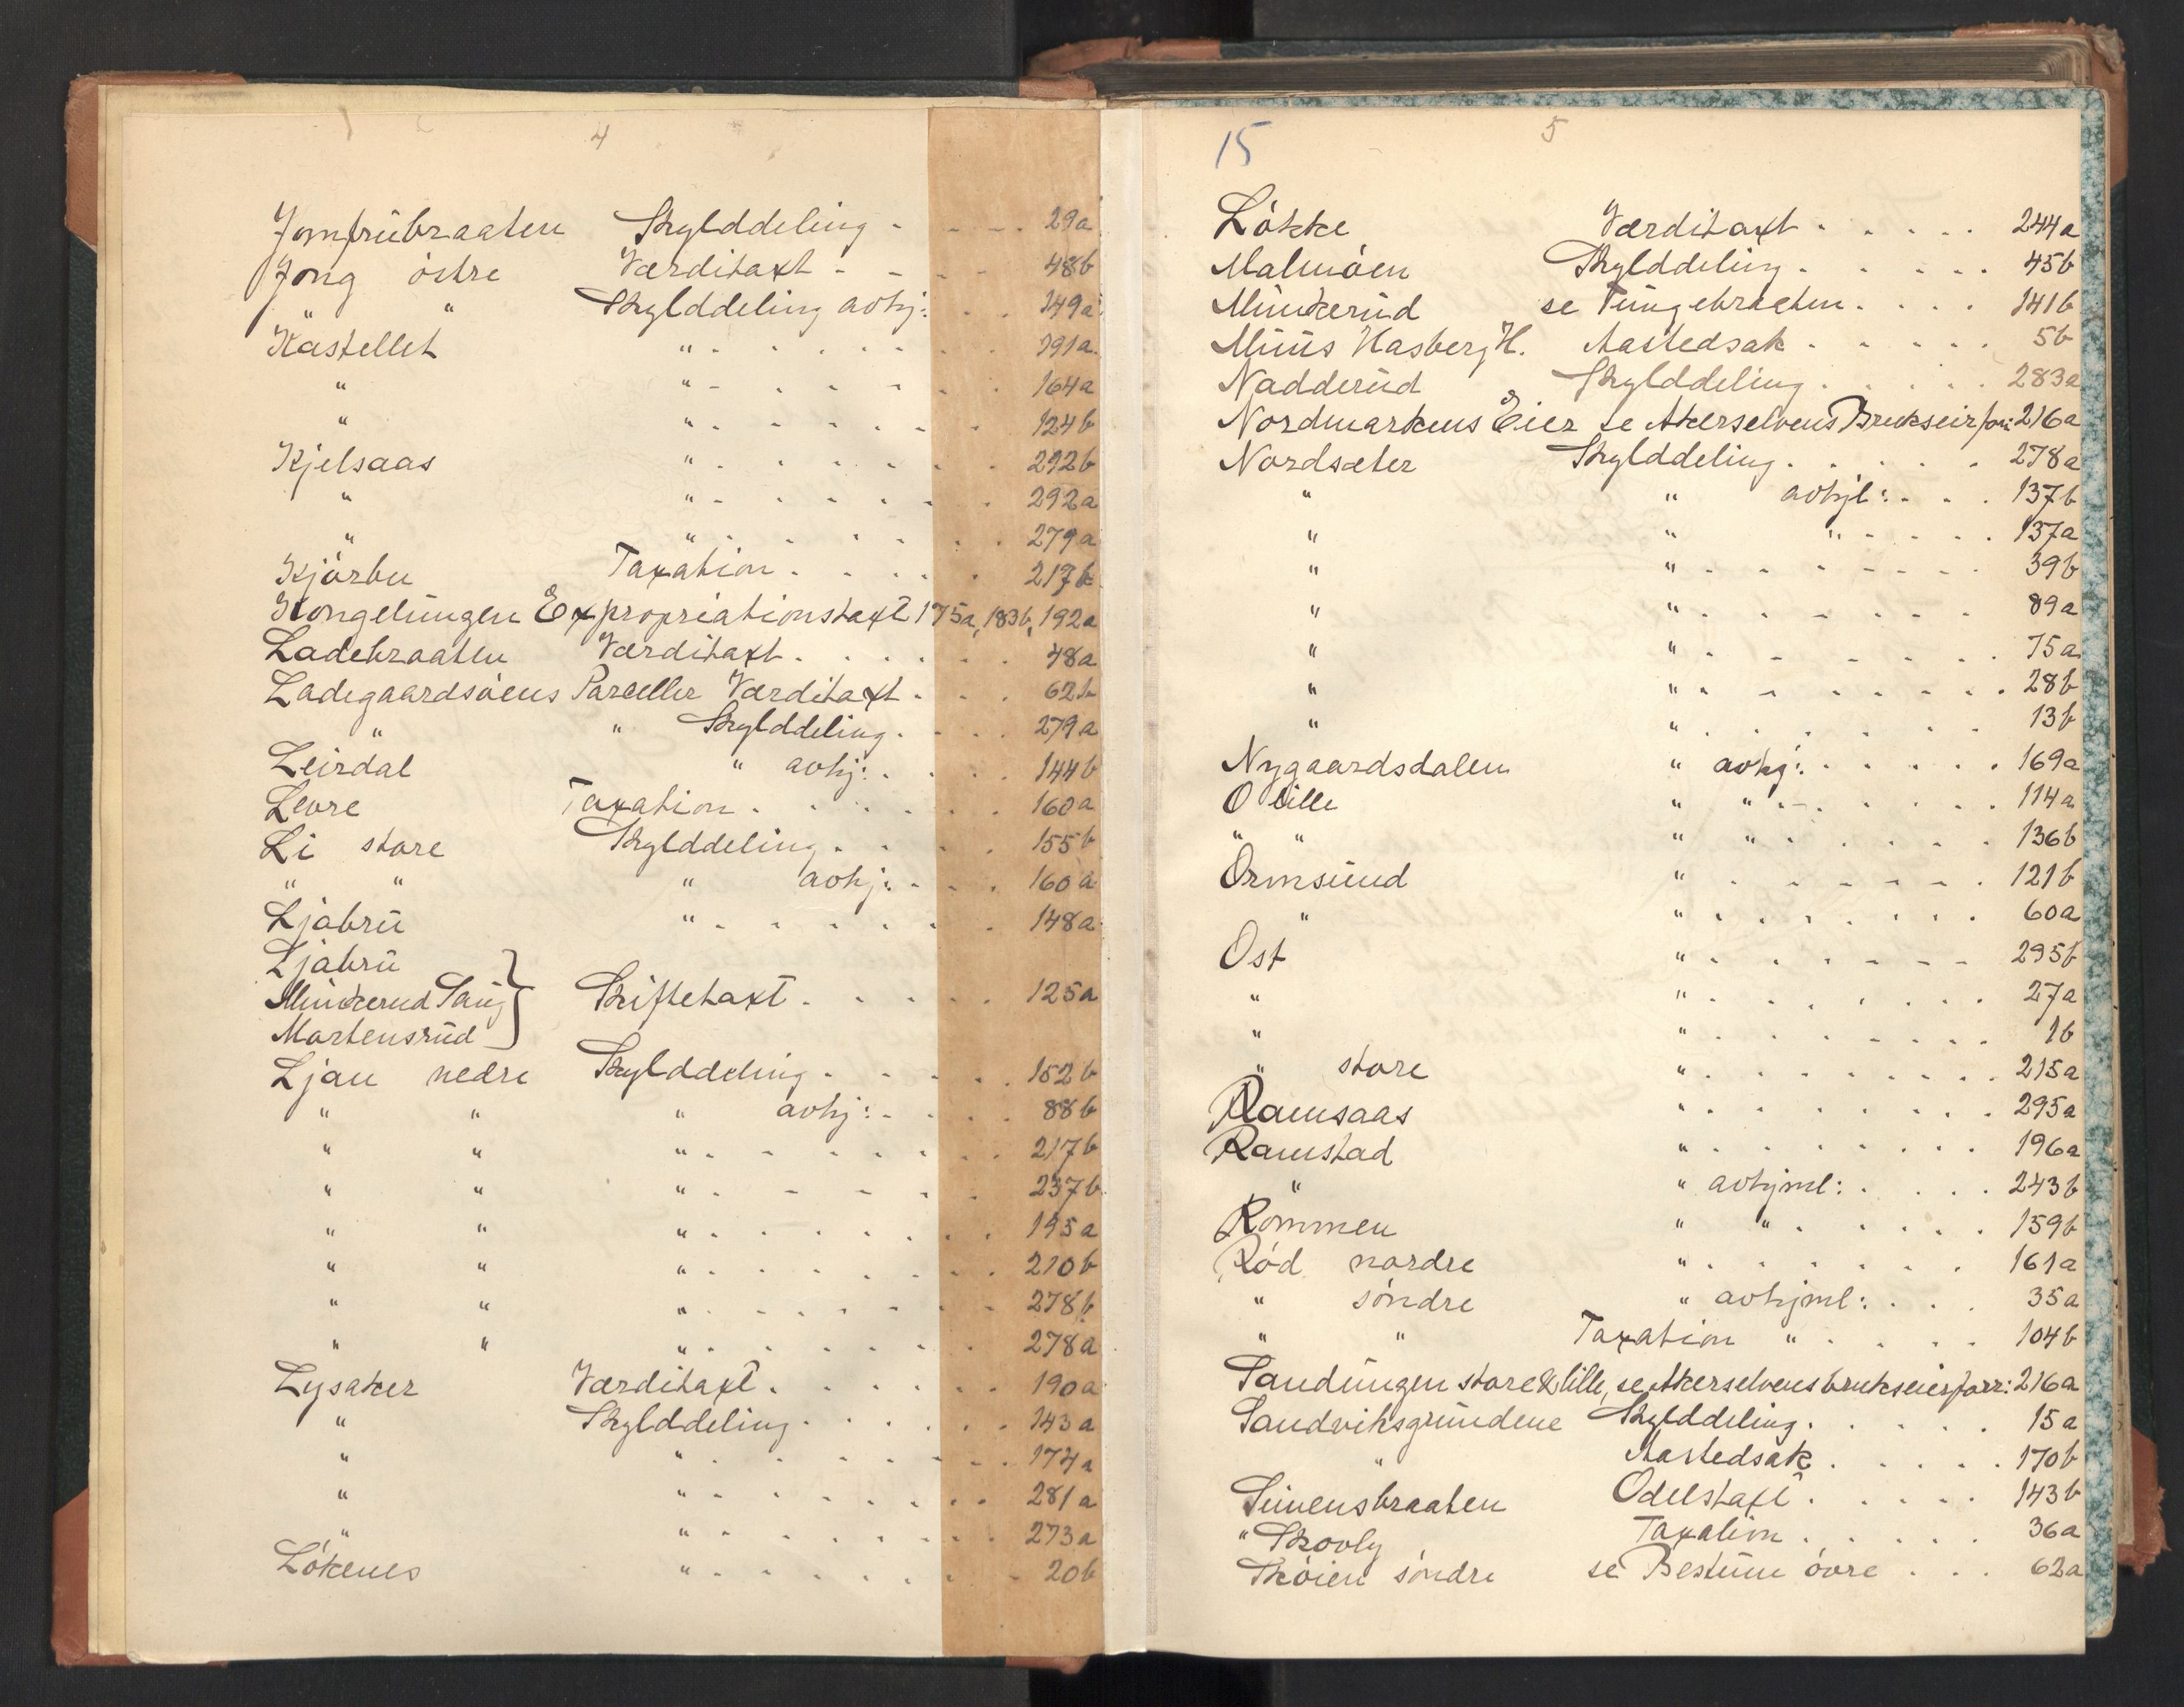 4
Jomfrübraaten Skylddeling - - - - 29a
Jong östre Værditaxt - - - - 48b
" " Skylddeling avhj: . . 149a
Kastellet " . . . . . . 191a
" " . . . . . . 164a
" " . . . . . . 124b
Kjelsaas " . . . . . . 292b
" " . . . . . . 292a
" " . . . . . . 279a
Kjörbu Taxation . . . . . 217b
Kongelüngen Expropriationstaxt 175a, 183b, 192a
Ladebraaten Værditaxt . . . . . 48a
Ladegaardsöens Parceller Værditaxt . . . 62b
" " Skylddeling . . . . 279a
Leirdal " avhj: . . . . 144b
Levre Taxation . . . . . . 160a
Li store Skylddeling . . . . . 155b
" " " avhj: . . . 160a
Ljabrü " . . . . . . 148a
Ljabrü
Münkerud Saug } Skiftetaxt . . . . . 125a
Martensrüd
Ljan nedre Skylddeling . . . . . 152b
" " " avhj: . . . . 88b
" " " . . . . . . 217b
" " " . . . . . . 237b
" " " . . . . . . 195a
" " " . . . . . . 210b
" " " . . . . . . 278b
" " " . . . . . . 278a
Lysaker Værditaxt . . . . . . 190a
" Skylddeling . . . . . . 143a
" " . . . . . . 174a
" " . . . . . . 281a
" " . . . . . . 273a
Lökenes " . . . . . . 20b
15 5
Lökke Værditaxt . . . . . 244a
Malmöen Skylddeling . . . . . 45b
Münkerüd se Tüngebraaten . . . . 141b
Müüs Hasberg H. Aastedsak . . . . . 5b
Nadderüd Skylddeling . . . . . 283a
Nordmarkens Eier se Akerselvens Brukseirfor: 216a
Nordsæter Skylddeling . . . . . 278a
" " avhjl: . . . 137b
" " " . . . . . 137a
" " . . . . . . . 39b
" " . . . . . . . 89a
" " . . . . . . . 75a
" " . . . . . . . 28b
" " . . . . . . . 13b
Nygaardsdalen " avhj: . . . . . 169a
O lille " " . . . . . . 114a
" " " " . . . . . 136b
Ormsünd " . . . . . . 121b
" " . . . . . . . 60a
Ost " . . . . . . . 295b
" " . . . . . . . 27a
" " . . . . . . . 1b
" store " . . . . . . . 215a
Ramsaas " . . . . . . . 295a
Ramstad " . . . . . . . 196a
" " avhjml: . . . . 243b
Rommen " " . . . . . 159b
Röd nordre " . . . . . . 161a
" söndre " avhjml: . . . 35a
" " Taxation " . . . . 104b
Sandüngen store & lille, se Akerselvens brukseierforr: 216a
Sandviksgründene Skylddeling . . . . 15a
" Aastedsak . . . . . 170b
Simensbraaten Odelstaxt . . . . . 143b
" Skovly Taxation . . . . . 36a
Sköien söndre se Bestüm övre . . . 62a